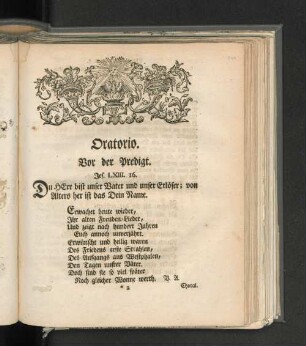 Oratorio.
Vor der Predigt.
Jes. LXIII. 16.
Du HErr bist unser Vater und unser Erlöser; von
Alters her ist das Dein Name.
Erwachet heute wieder,
Ihr alten Freuden-Lieder,
Und zeigt nach hundert Jahren
Euch annoch unverjährt.
Erwünscht und heilig waren
Des Friedens erste Strahlen,
Des Aufgangs aus Westphalen,
Den Tagen unsrer Väter.
Doch sind sie so viel später
Noch gleicher Wonne werth. V. A.
Choral.